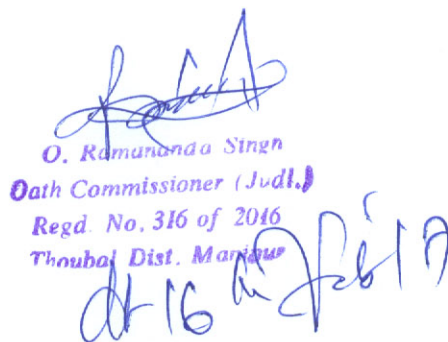 O. Ramananda Singh
Oath Commissioner (Judl.)
Regd. No. 316 of 2016
Thoubal Dist. Manipur
dt 16 Feb 17